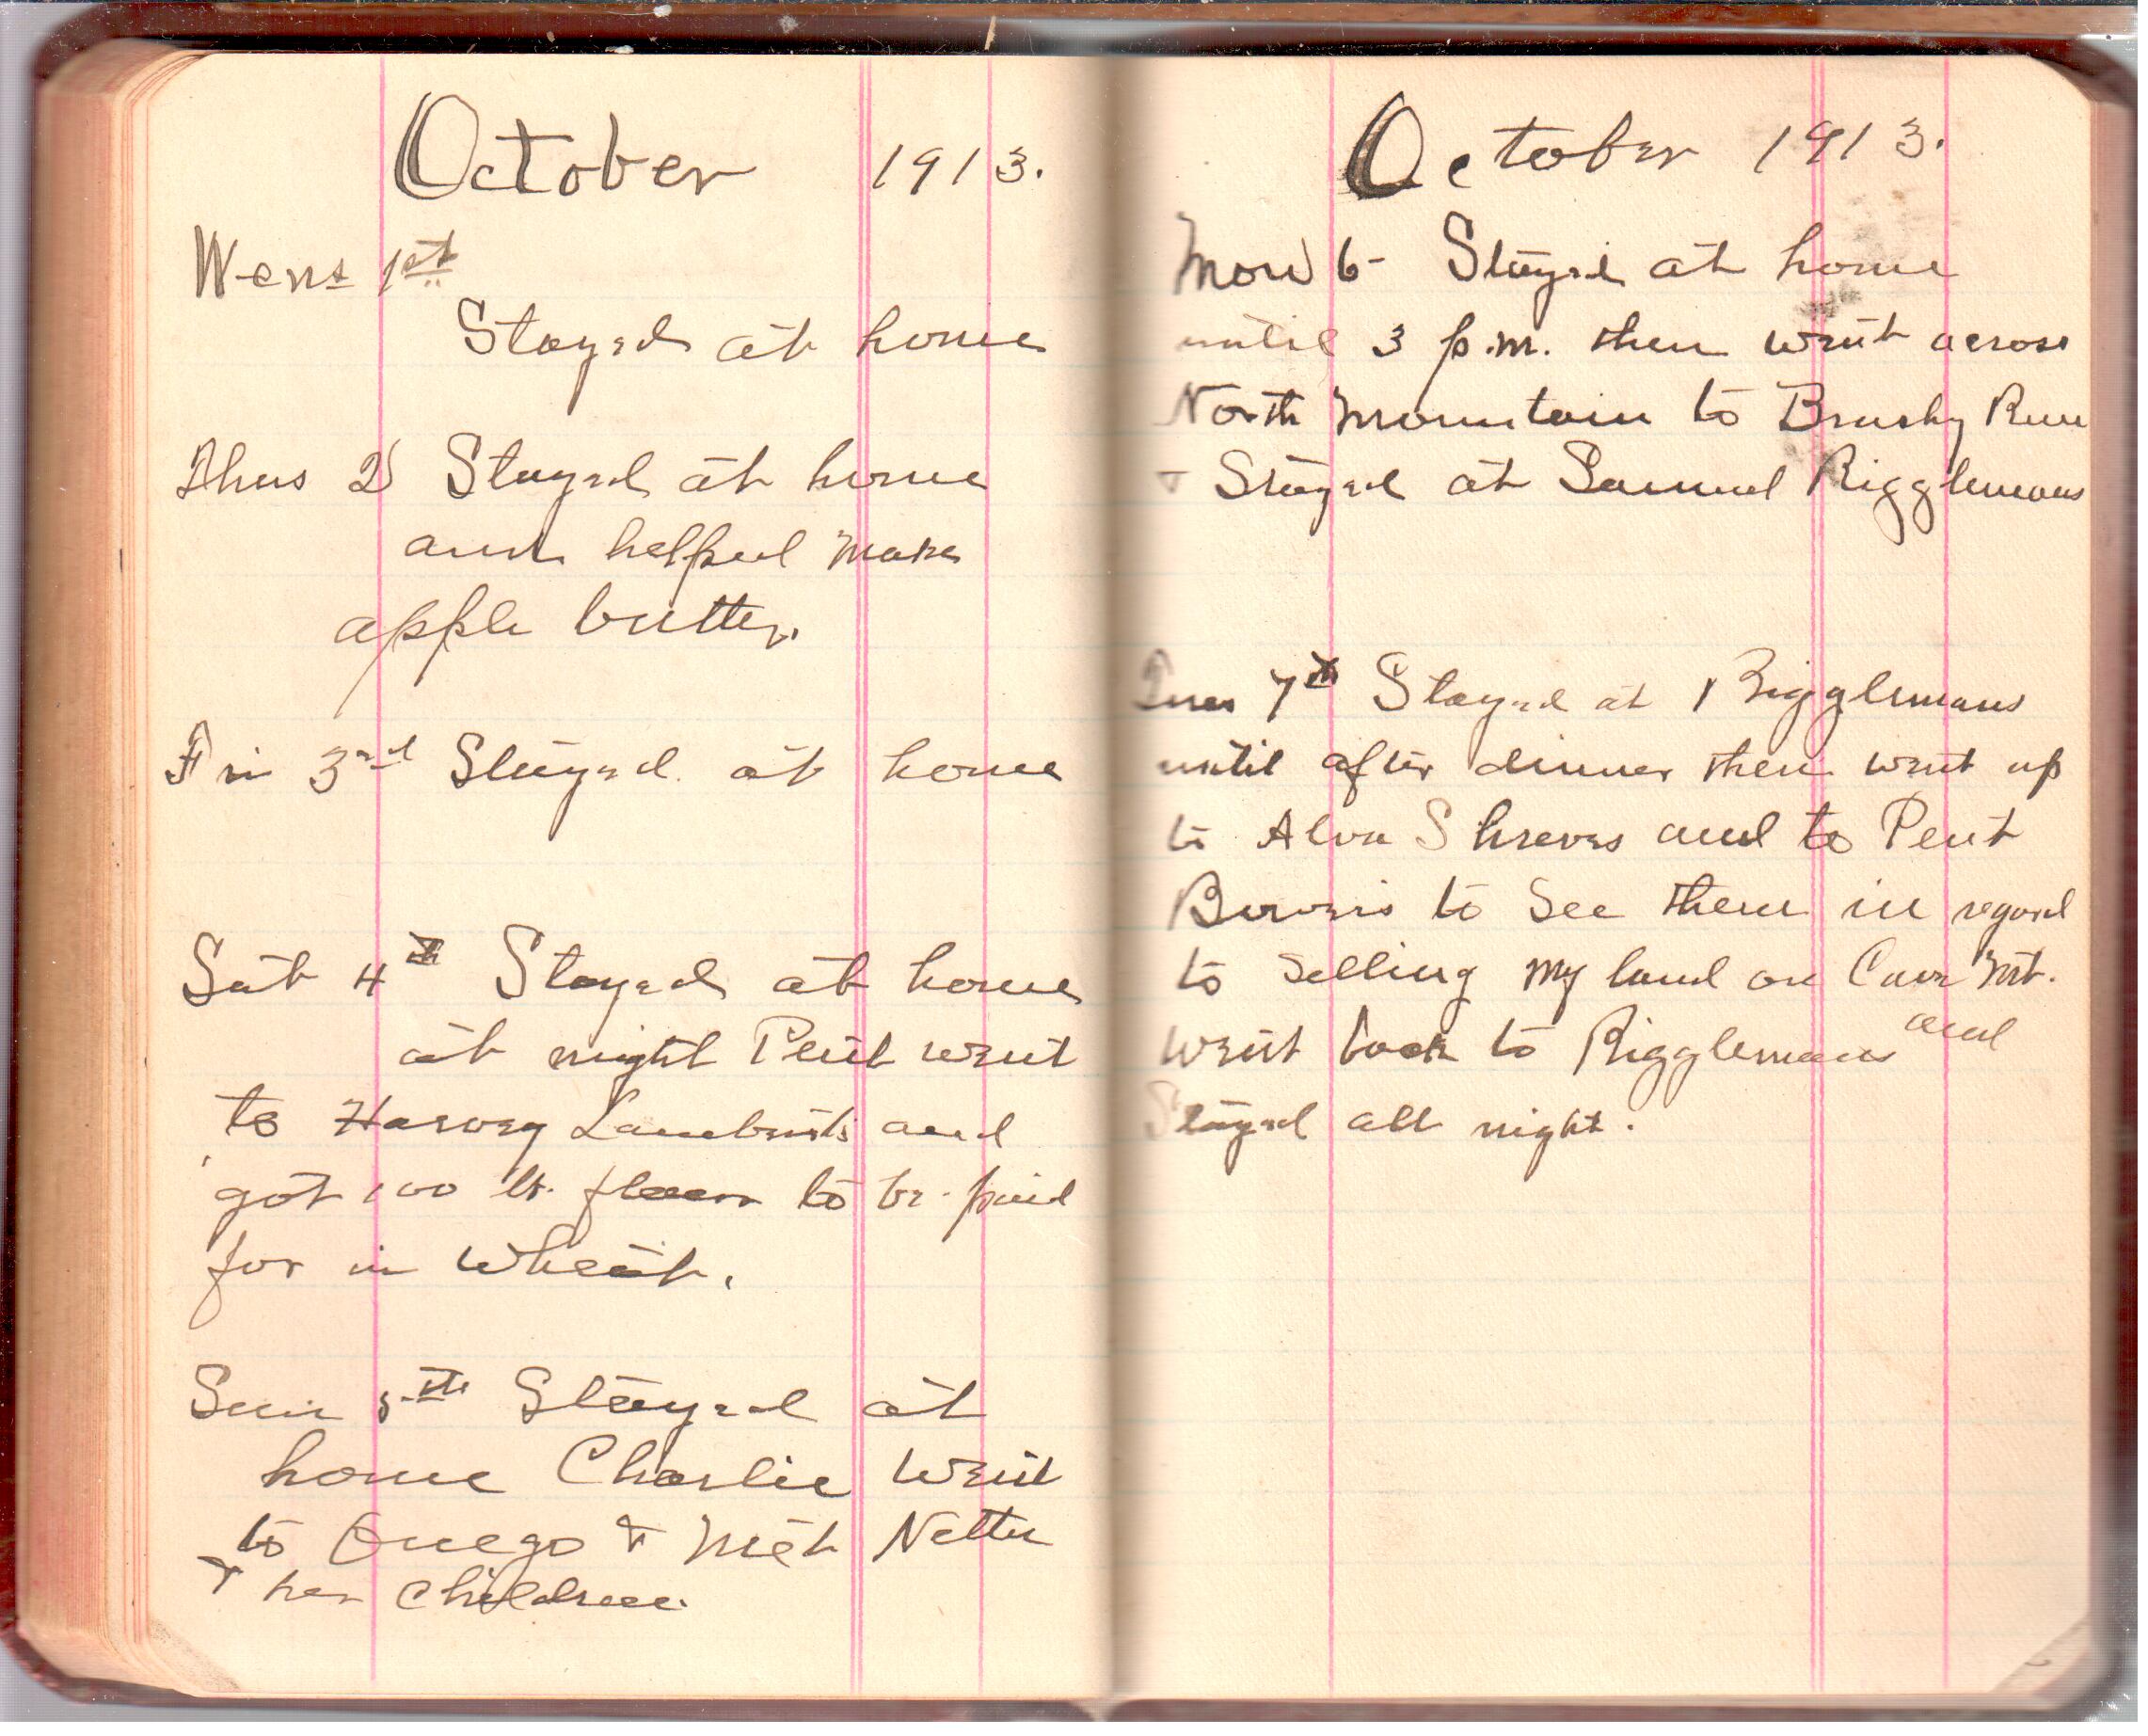 October 1913.
Wens 1st
Stayed at home
Thus 2 Stayed at home
and helped make
apple butter.
Fri 3rd Stayed at home
Sat 4th Stayed at home
at night Pent went
to Harvey Lambert's and
got 100 lb. flour to be paid
for in wheat.
Sun 5th Stayed at
home Charlie went
to Onego & met Nettie
& her children.
October 1913.
Mon 6 - Stayed at home
until 3 p.m. then went across
North Mountain to Brushy Run
& Stayed at Samuel Rigglemans
Tues 7th Stayed at Rigglemans
until after dinner then went up
to Alva Shreves and to Pent
to see them in regard
to selling my land on Cave Mt.
went back to Rigglemans and
Stayed all night.